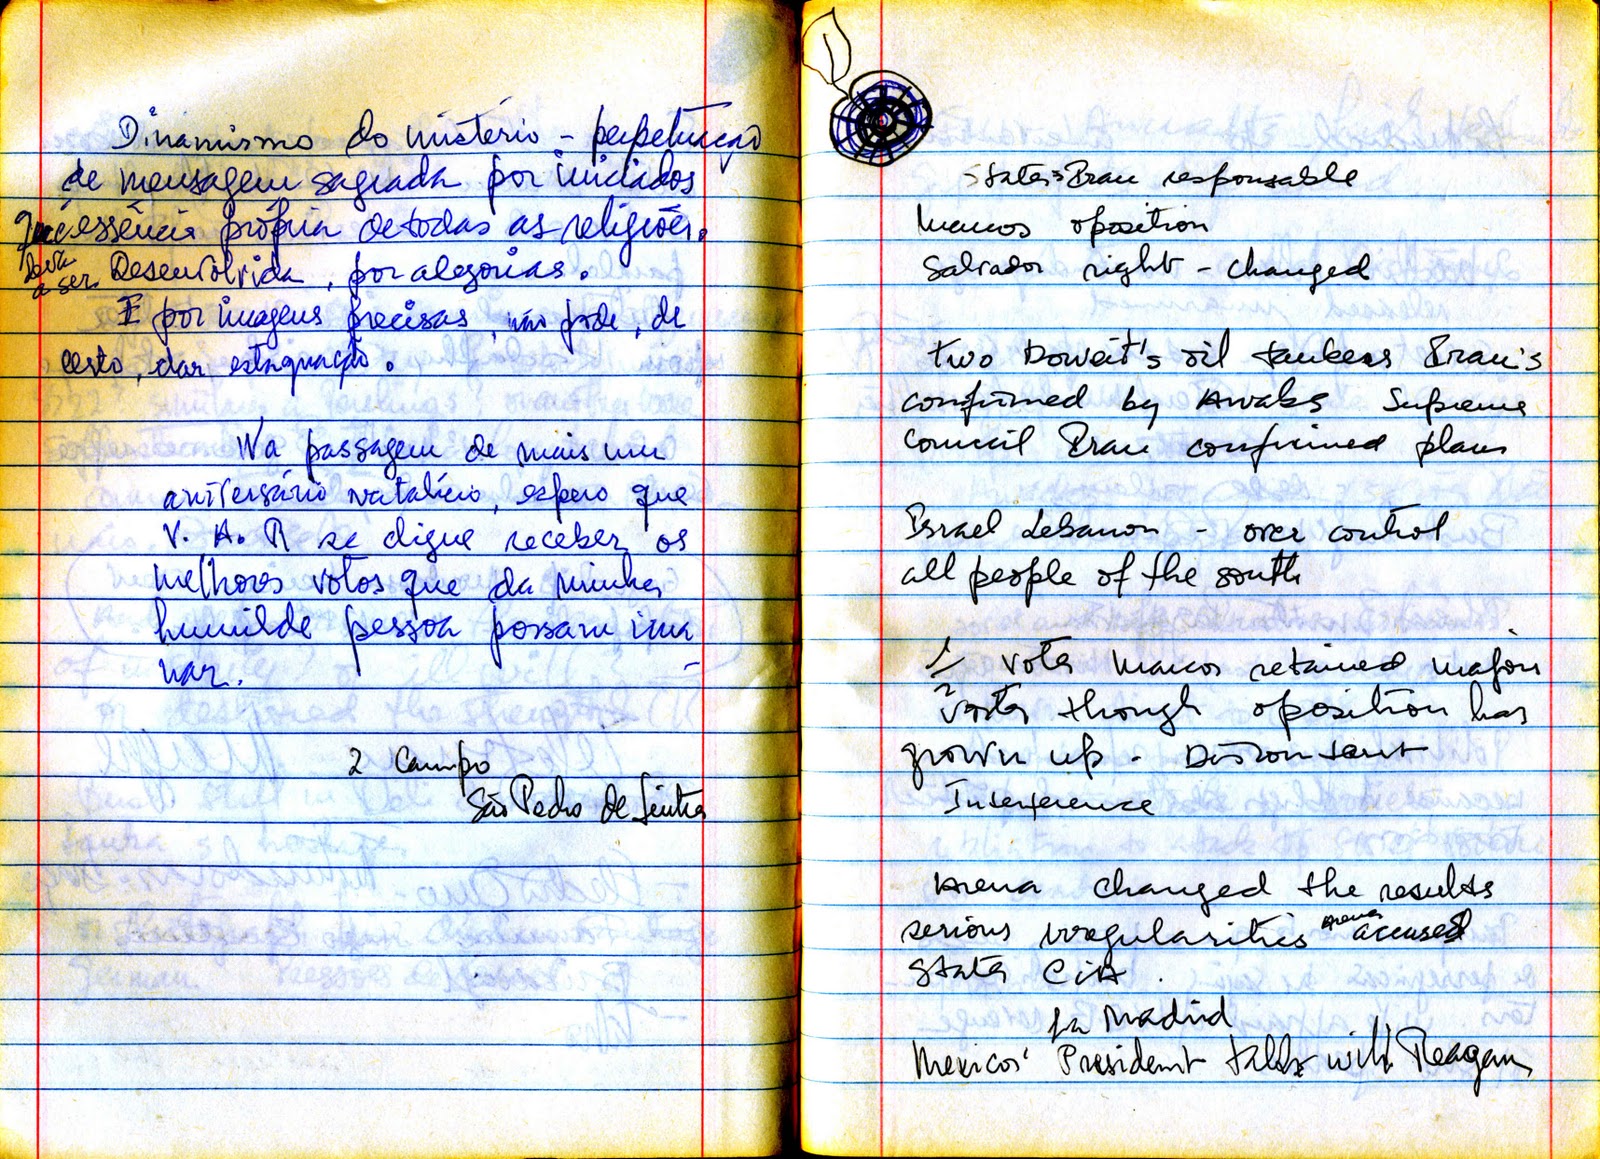 Dinamismo do mistério - perpetuação
de mensagem sagrada por iniciados
que é essência própria de todas as religiões.
Deva
a ser. Desenvolvida, por alegorias.
E por imagens precisas, não pode, de
certo, dar estagnação.
Na passagem de mais um
aniversário natalício, espero que
V. A. R se digne receber os
melhores votos que da minha
humilde pessoa possam ima
nar. -
2 Campo
São Pedro de Sintra
States Iran responsable
Marcos oposition
Salvador right - changed
two Koweit's oil tankers Iran's
confirmed by Awaks Supreme
Council Iran confirmed plans
Israel Lebanon - over control
all people of the south
1/ votes Marcos retained major
2 votes though oposition has
grown up -
Interference
Arena changed the results
serious irregularities Arena accused
States CIA.
in Madrid
Mexicos' President talks with Reagan